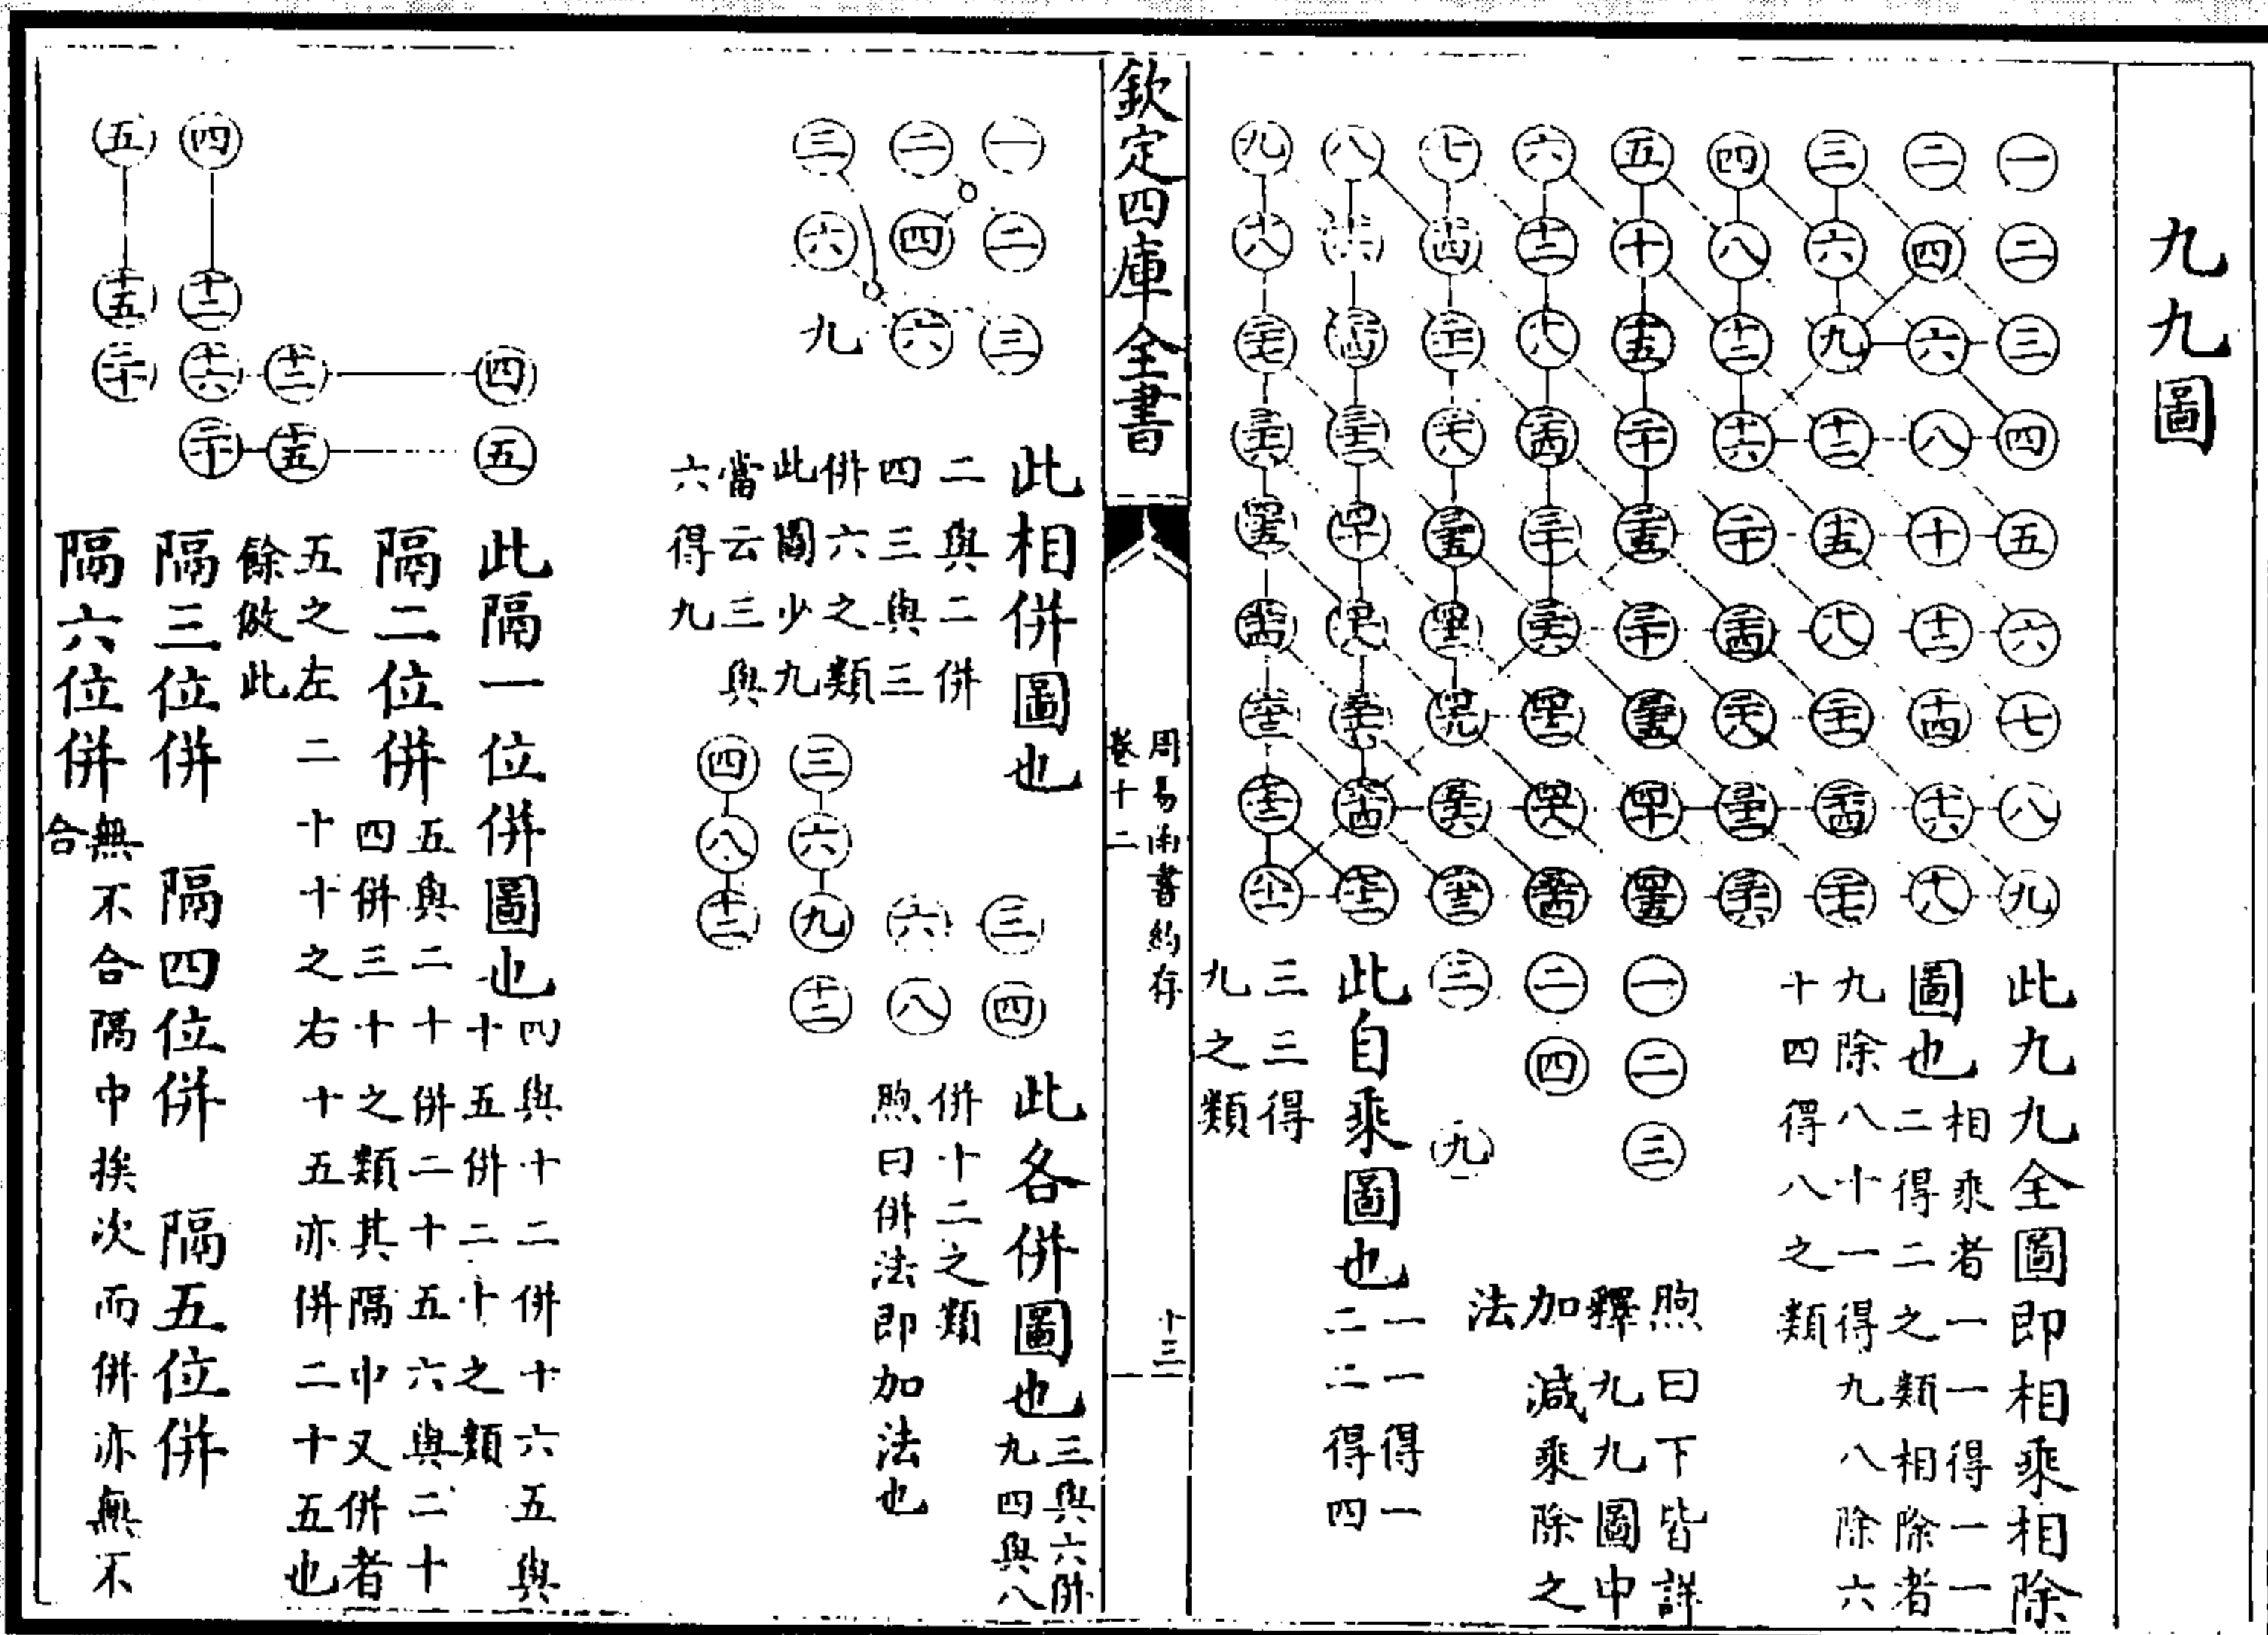 九九圖
一二三四五六七八九
二四六八十十二十四十六十八
三六九十二十五十八二十一二十四二十七
四八十二十六二十二十四二十八三十二三十六
五十十五二十二十五三十三十五四十四十五
六十二十八二十四三十三十六四十二四十八五十四
七十四二十一二十八三十五四十二四十九五十六六十三
八十六二十四三十二四十四十八五十六六十四七十二
九十八二十七三十六四十五五十四六十三七十二八十一
此九九全圖即相乘相除
圖也相乘者一一得一一
二得二之類相除者
九除八十一得九八除六
十四得八之類
一二三
二四
三九
煦曰下皆詳
釋九九圖中
加減乘除之
法
此自乘圖也一一得一
二二得四
三三得
九之類
欽定四庫全書
周易函書約存
卷十二
十三
一二三
二四六
三六九
此相併圖也
二與二併
四三與三
併六之類
此圖少九
當云三與
六得九
三四
六八
三六九十二
四八十二
此各併圖也三與六併
九四與八
併十二之類
煦曰併法即加法也
四五
十二十五
四十二十六二十
五十五二十
此隔一位併圖也四與十二併十六五與
十五併二十之類
隔二位併五與二十併二十五六與二十
四併三十之類其隔中又併者
五之左二十十之右十五亦併二十五也
餘倣此
隔三位併 隔四位併 隔五位併
隔六位併無不合隔中挨次而併亦無不
合